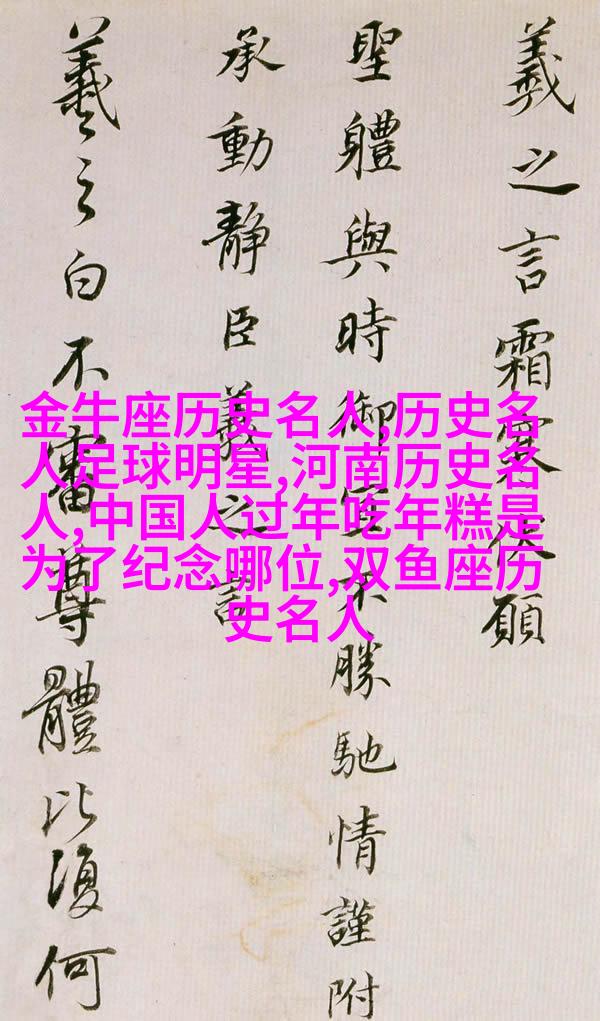 義之言霜寒伏願
聖體與時御宜不勝馳情謹附
承動靜臣義之
羲之白不審尊體比復何
金牛座历史名人,历史名
人足球明星,河南历史名
人,中国人过年吃年糕是
为了纪念哪位,双鱼座历
史名人